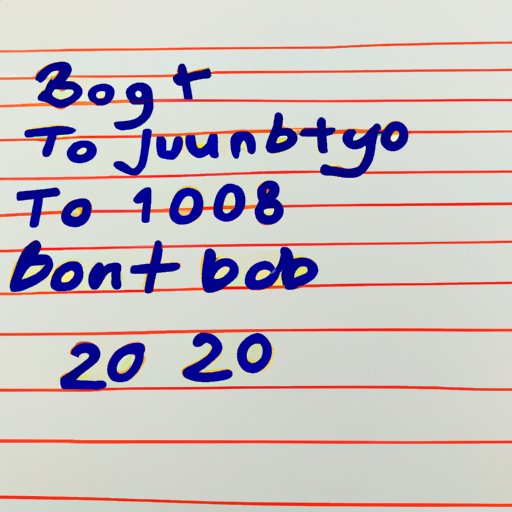 Bogt
To juunbtyo
To 1008
Bont bob
20 20